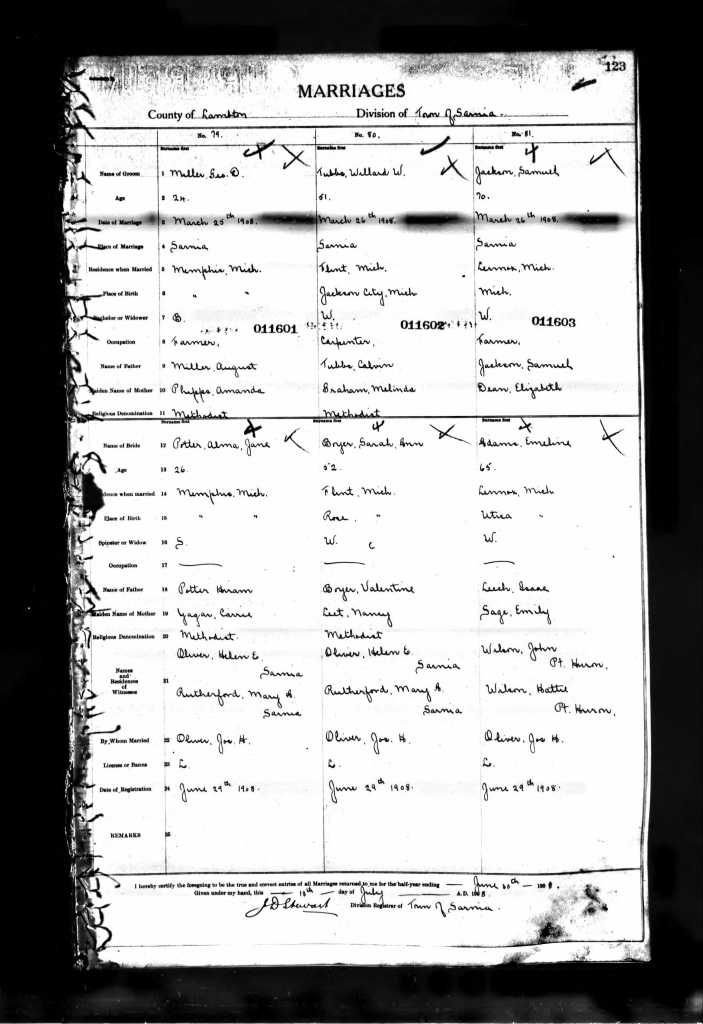 123
MARRIAGES
County of Lambton Division of Town of Sarnia
No. 79. No. 80. No. 81.
Surname first Surname first Surname first
Name of Groom 1 Miller, Geo. D. Tubbs, Willard W. Jackson, Samuel
Age 2 24. 51. 70.
Date of Marriage 3 March 25th 1908. March 26th 1908. March 26th 1908.
Place of Marriage 4 Sarnia Sarnia Sarnia
Residence when Married 5 Memphis, Mich. Flint, Mich. Lennox, Mich.
Place of Birth 6 " " Jackson City, Mich Mich.
Bachelor or Widower 7 B. W. W.
011601 011602 011603
Occupation 8 Farmer, Carpenter, Farmer,
Name of Father 9 Miller August Tubbs, Calvin Jackson, Samuel
Maiden Name of Mother 10 Phipps, Amanda Braham, Melinda Dean, Elizabeth
Religious Denomination 11 Methodist Methodist
Surname first Surname first Surname first
Name of Bride 12 Potter, Alma, Jane Boyer, Sarah, Ann Adams, Emeline
Age 13 26. 52. 65.
Residence when married 14 Memphis, Mich. Flint, Mich. Lennox, Mich
Place of Birth 15 " " Rose, " Utica "
Spinster or Widow 16 S. W. W.
Occupation 17
Name of Father 18 Potter Hiram Boyer, Valentine Leech, Isaac
Maiden Name of Mother 19 Yagar, Carrie Leet, Nancy Sage, Emily
Religious Denomination 20 Methodist. Methodist
Names and Residences of Witnesses 21 Oliver, Helen E. Oliver, Helen E. Wilson, John
Sarnia Sarnia Pt. Huron,
Rutherford, Mary A. Rutherford, Mary A. Wilson, Hattie
Sarnia Sarnia Pt. Huron,
By Whom Married 22 Oliver, Jos. H. Oliver, Jos. H. Oliver, Jos H.
License or Banns 23 L. L. L.
Date of Registration 24 June 29th 1908. June 29th 1908. June 29th 1908.
REMARKS 25
I hereby certify the foregoing to be the true and correct entries of all Marriages returned to me for the half-year ending June 30th 1908.
Given under my hand, this day of July A.D. 1908
J D Stewart Division Registrar of Town of Sarnia.